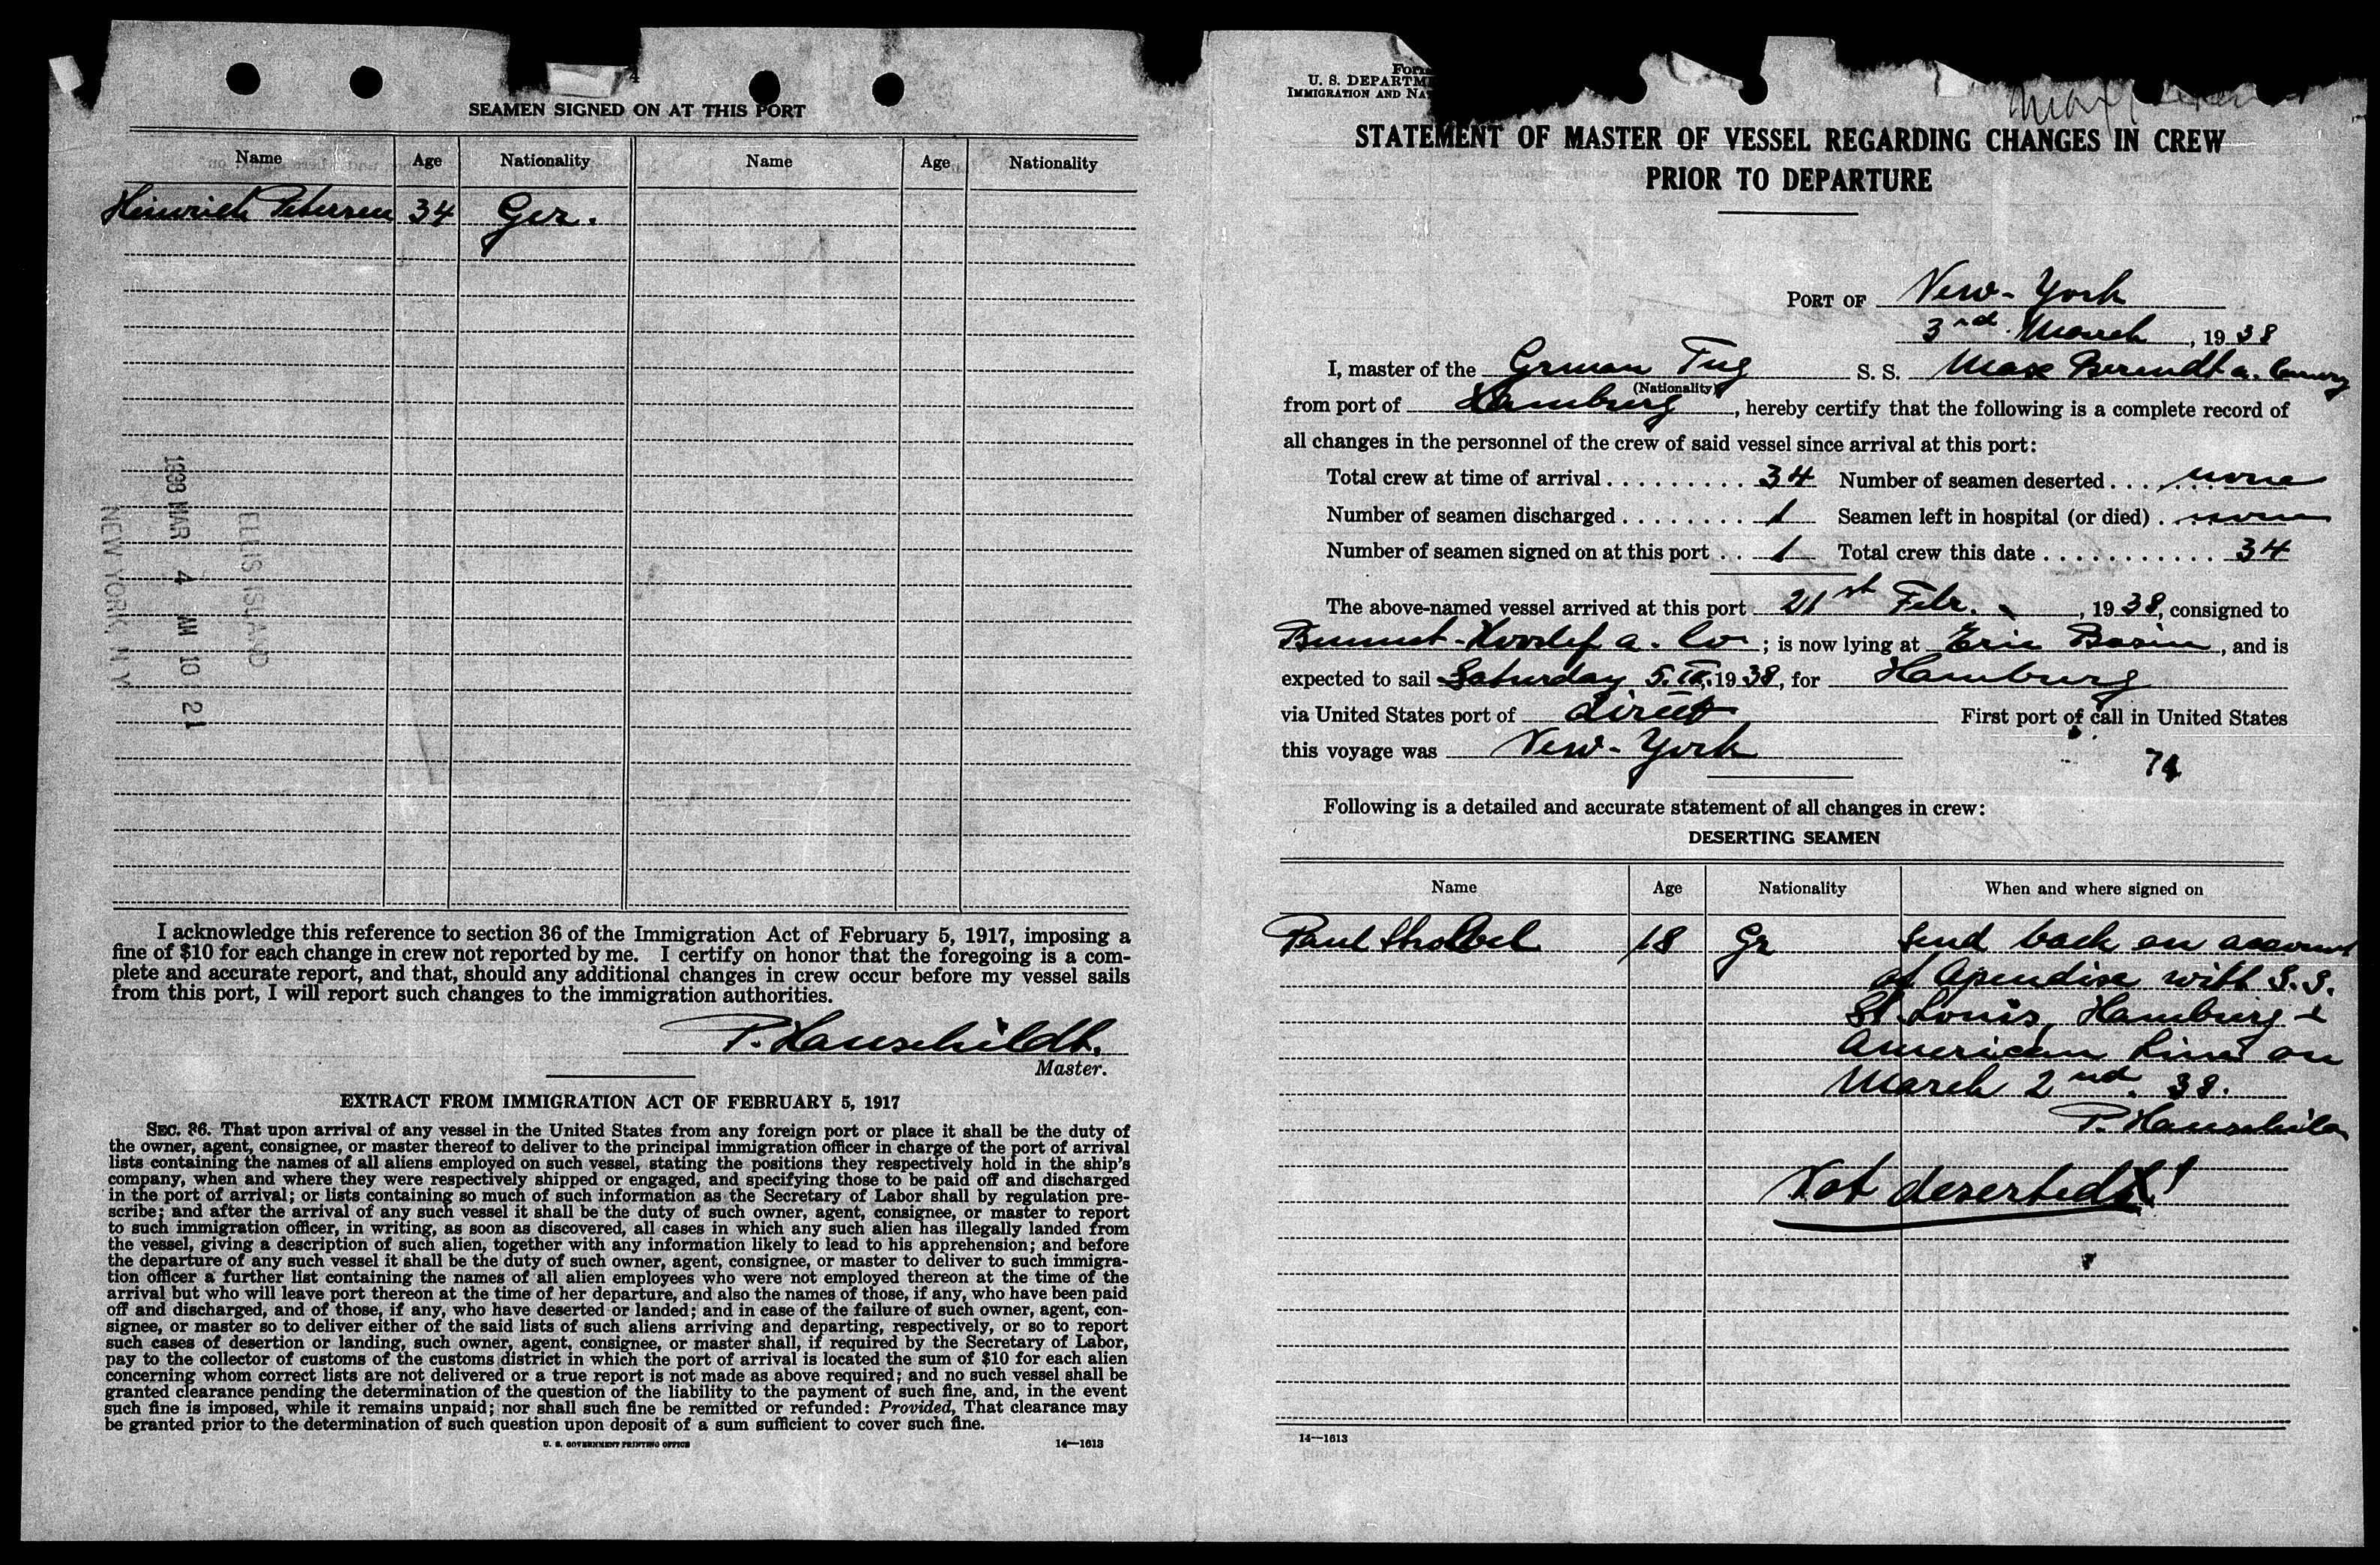 4
SEAMEN SIGNED ON AT THIS PORT
Name Age Nationality Name Age Nationality
Heinrich Petersen 34 Ger.
1938 MAR 4 AM 10 21
ELLIS ISLAND
NEW YORK, N.Y.
I acknowledge this reference to section 36 of the Immigration Act of February 5, 1917, imposing a
fine of $10 for each change in crew not reported by me. I certify on honor that the foregoing is a com-
plete and accurate report, and that, should any additional changes in crew occur before my vessel sails
from this port, I will report such changes to the immigration authorities.
P. Hauschildt.
Master.
EXTRACT FROM IMMIGRATION ACT OF FEBRUARY 5, 1917
SEC. 36. That upon arrival of any vessel in the United States from any foreign port or place it shall be the duty of
the owner, agent, consignee, or master thereof to deliver to the principal immigration officer in charge of the port of arrival
lists containing the names of all aliens employed on such vessel, stating the positions they respectively hold in the ship's
company, when and where they were respectively shipped or engaged, and specifying those to be paid off and discharged
in the port of arrival; or lists containing so much of such information as the Secretary of Labor shall by regulation pre-
scribe; and after the arrival of any such vessel it shall be the duty of such owner, agent, consignee, or master to report
to such immigration officer, in writing, as soon as discovered, all cases in which any such alien has illegally landed from
the vessel, giving a description of such alien, together with any information likely to lead to his apprehension; and before
the departure of any such vessel it shall be the duty of such owner, agent, consignee, or master to deliver to such immigra-
tion officer a further list containing the names of all alien employees who were not employed thereon at the time of the
arrival but who will leave port thereon at the time of her departure, and also the names of those, if any, who have been paid
off and discharged, and of those, if any, who have deserted or landed; and in case of the failure of such owner, agent, con-
signee, or master so to deliver either of the said lists of such aliens arriving and departing, respectively, or so to report
such cases of desertion or landing, such owner, agent, consignee, or master shall, if required by the Secretary of Labor,
pay to the collector of customs of the customs district in which the port of arrival is located the sum of $10 for each alien
concerning whom correct lists are not delivered or a true report is not made as above required; and no such vessel shall be
granted clearance pending the determination of the question of the liability to the payment of such fine, and, in the event
such fine is imposed, while it remains unpaid; nor shall such fine be remitted or refunded: Provided, That clearance may
be granted prior to the determination of such question upon deposit of a sum sufficient to cover such fine.
U. S. GOVERNMENT PRINTING OFFICE 14—1613
Form
U. S. DEPARTM
IMMIGRATION AND NA
Max
STATEMENT OF MASTER OF VESSEL REGARDING CHANGES IN CREW
PRIOR TO DEPARTURE
PORT OF New-York
3rd. March, 1938
I, master of the German Tug S. S. Max Berendt a.
(Nationality)
from port of Hamburg, hereby certify that the following is a complete record of
all changes in the personnel of the crew of said vessel since arrival at this port:
Total crew at time of arrival . . . . . . . . . 34 Number of seamen deserted . . . . none
Number of seamen discharged . . . . . . . . 1 Seamen left in hospital (or died) . none
Number of seamen signed on at this port . . 1 Total crew this date . . . . . . . . . . . . 34
The above-named vessel arrived at this port 21st Febr., 1938, consigned to
a. Co; is now lying at Erie Basin, and is
expected to sail Saturday 5.III.1938, for Hamburg
via United States port of Direct First port of call in United States
this voyage was New-York
74
Following is a detailed and accurate statement of all changes in crew:
DESERTING SEAMEN
Name Age Nationality When and where signed on
Paul 18 Gr send back on account
of Apendise with S.S.
St. Louis, Hamburg -
American Line on
March 2nd. 38.
P. Hauschildt
Not deserted!
14—1613